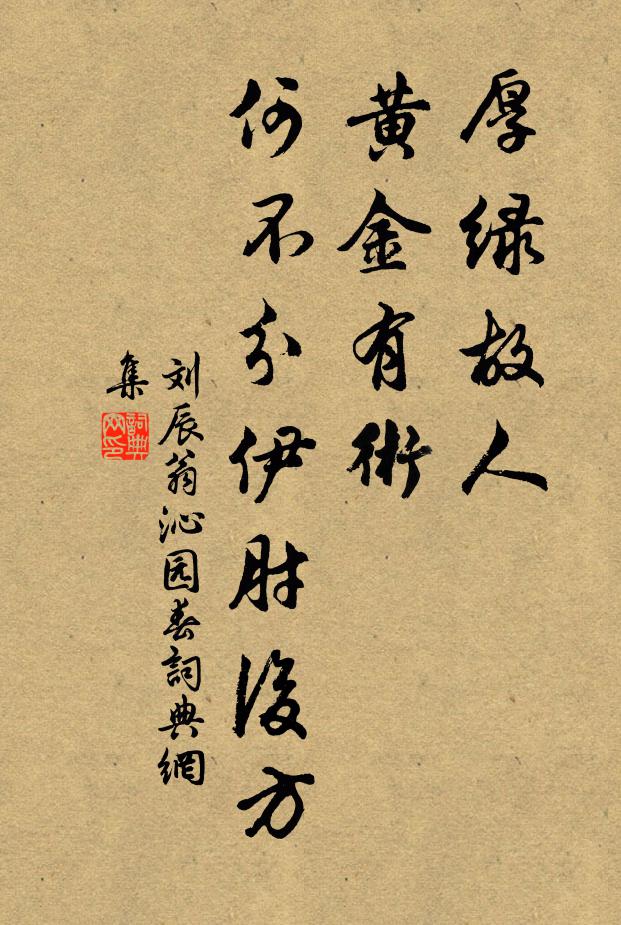 厚綠故人
黄金有術
何不分伊肘後方
刘辰翁沁园春詞典網
集
詞典
网印